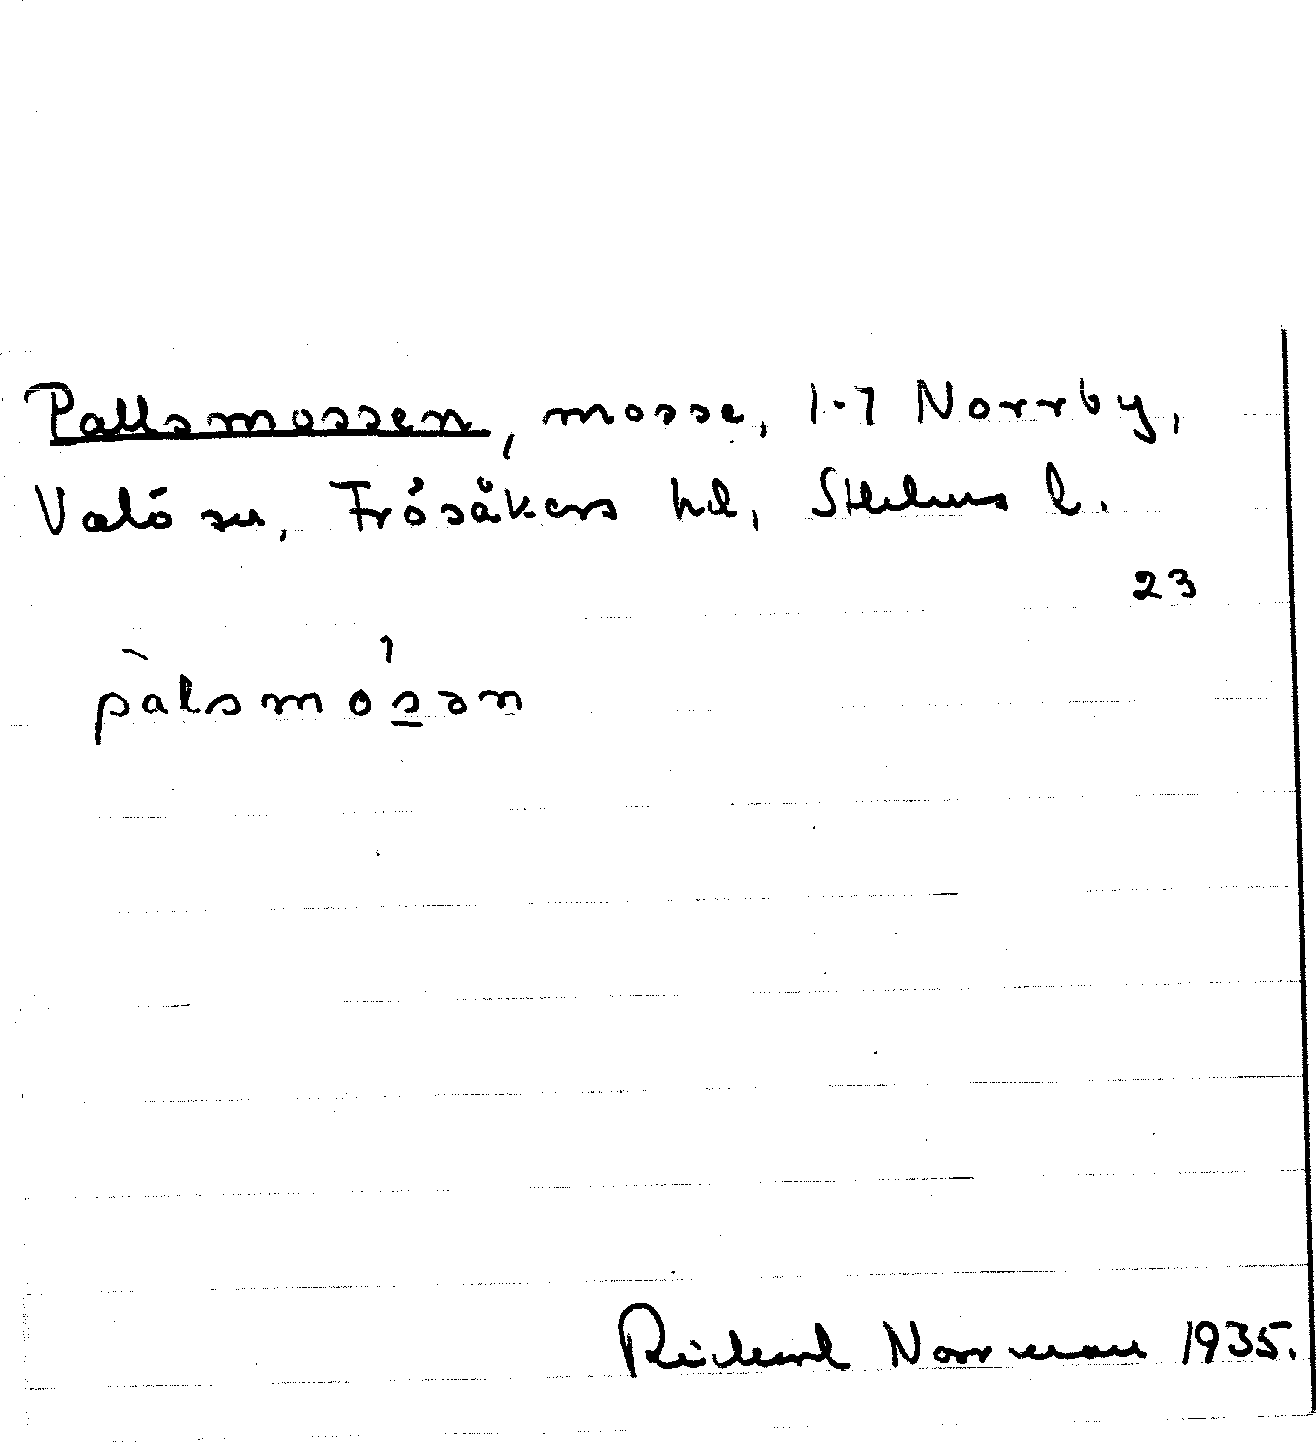 Pallsmossen, mosse, 1-7 Norrby,
Valö sn, Frösåkers hd, Sthlms l.
23
pàlsmósən
Richard Norrman 1935.